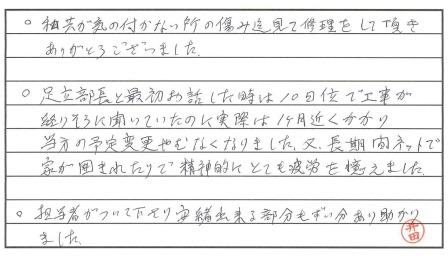 ○ 私共が気の付かない所の傷み迄見て修理をして頂き
ありがとうございました。
○ 足立部長と最初お話した時は10日位で工事が
終りそうに聞いていたのに実際は1ヶ月近くかかり
当方の予定変更やむなくなりました。又、長期間ネットで
家が囲まれたりで精神的にとても疲労を憶えました。
○ 担当者がついて下さり 出来る部分もずい分あり助かり
ました。
井田